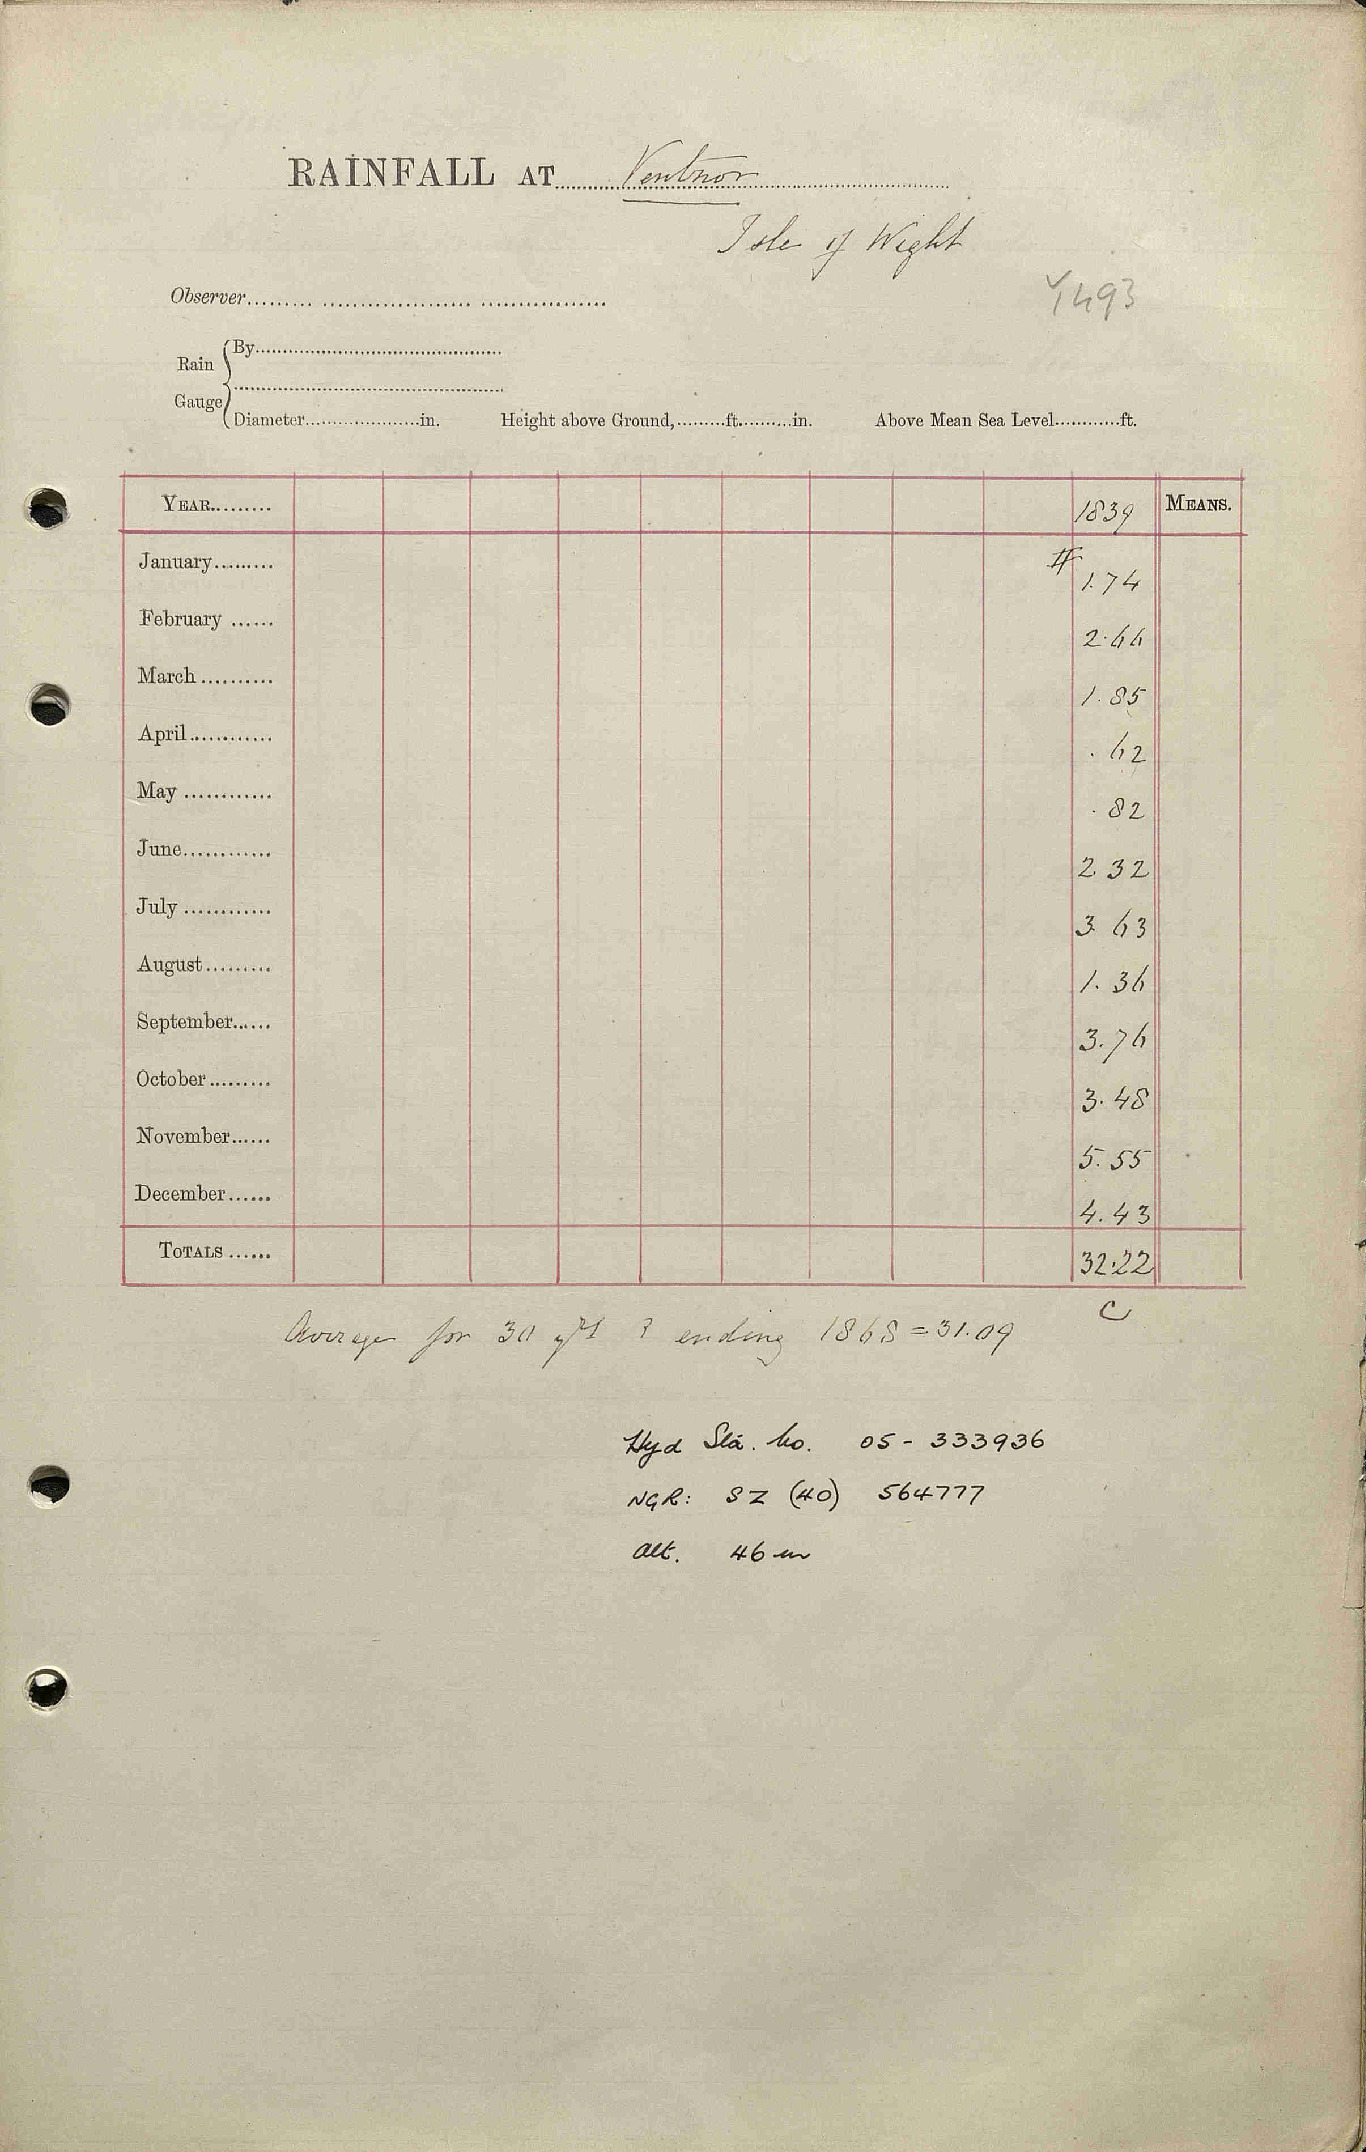 RAINFALL AT Ventnor
Isle of Wight
Observer
1493
Rain Gauge
By
Diameter in. Height above Ground, ft. in. Above Mean Sea Level ft.
YEAR 1839 MEANS.
January 1.74
February 2.66
March 1.85
April .62
May .82
June 2 32
July 3 63
August 1.36
September 3.76
October 3.48
November 5.55
December 4.43
TOTALS 32.22
C
Average for 30 yrs ? ending 1868 = 31.09
Hyd Sta. No. 05-333936
NGR: SZ (40) 564777
Alt. 46 m